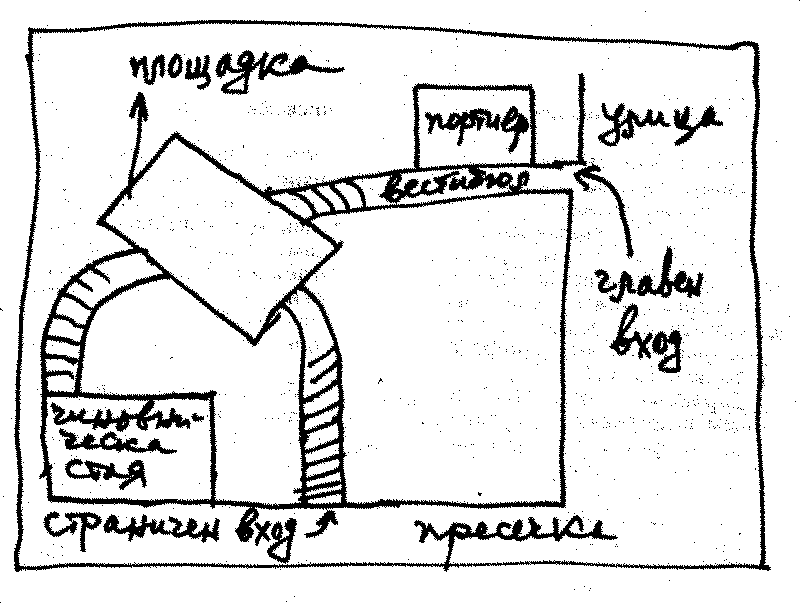 площадка
портиер
улица
вестибюл
главен
вход
чиновни-
ческа
стая
страничен вход
пресечка